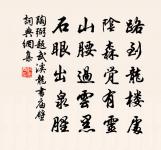 路到龍樓處
陰森覺有靈
山腰過雲黑
石眼出泉腥
陶弼題武溪龍書庙壁
詞典網集